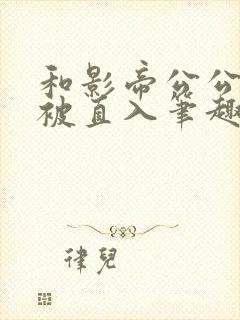 和影帝公公
被直入笔趣
律兒